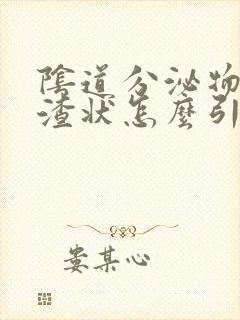 陰道分泌物
渣状怎麼引
娄某心